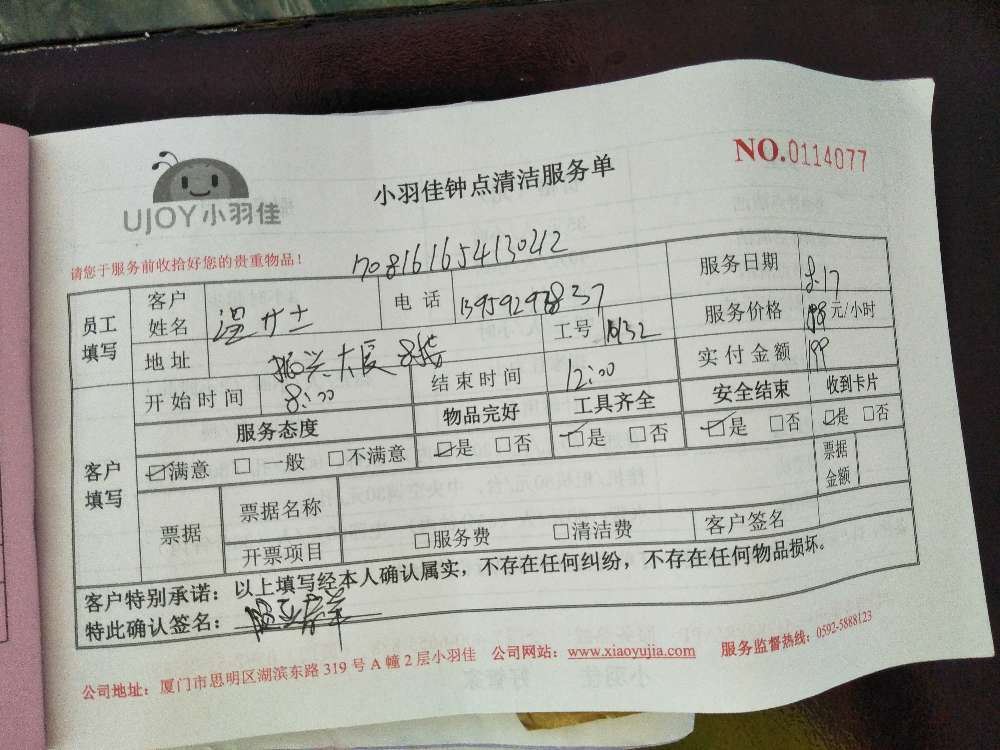 NO.0114077
UJOY小羽佳
小羽佳钟点清洁服务单
请您于服务前收拾好您的贵重物品！
员工填写 客户姓名 温女士 电话 服务日期 8.17
服务价格 元/小时
地址 振兴大厦 工号
实付金额
开始时间 8:00 结束时间 12:00
客户填写 服务态度 物品完好 工具齐全 安全结束 收到卡片
☑满意 □一般 □不满意 ☑是 □否 ☑是 □否 ☑是 □否 ☑是 □否
票据 票据名称 票据金额
开票项目 □服务费 □清洁费 客户签名
客户特别承诺：以上填写经本人确认属实，不存在任何纠纷，不存在任何物品损坏。
特此确认签名：
公司地址：厦门市思明区湖滨东路319号A幢2层小羽佳 公司网站：www.xiaoyujia.com 服务监督热线：0592-5888123